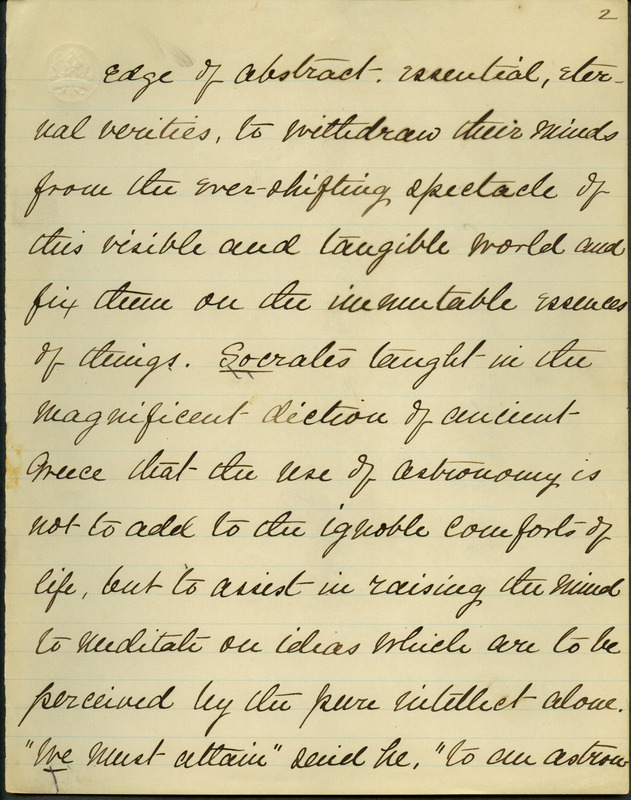 2
edge of abstract. essential, eter-
nal verities, to withdraw their minds
from the ever-shifting spectacle of
this visible and tangible world and
fix them on the immutable essences
of things. Socrates taught in the
magnificent diction of ancient
Greece that the use of astronomy is
not to add to the ignoble comforts of
life, but to assist in raising the mind
to meditate on ideas which are to be
perceived by the pure intellect alone.
"We must attain" said he, "to an astron-